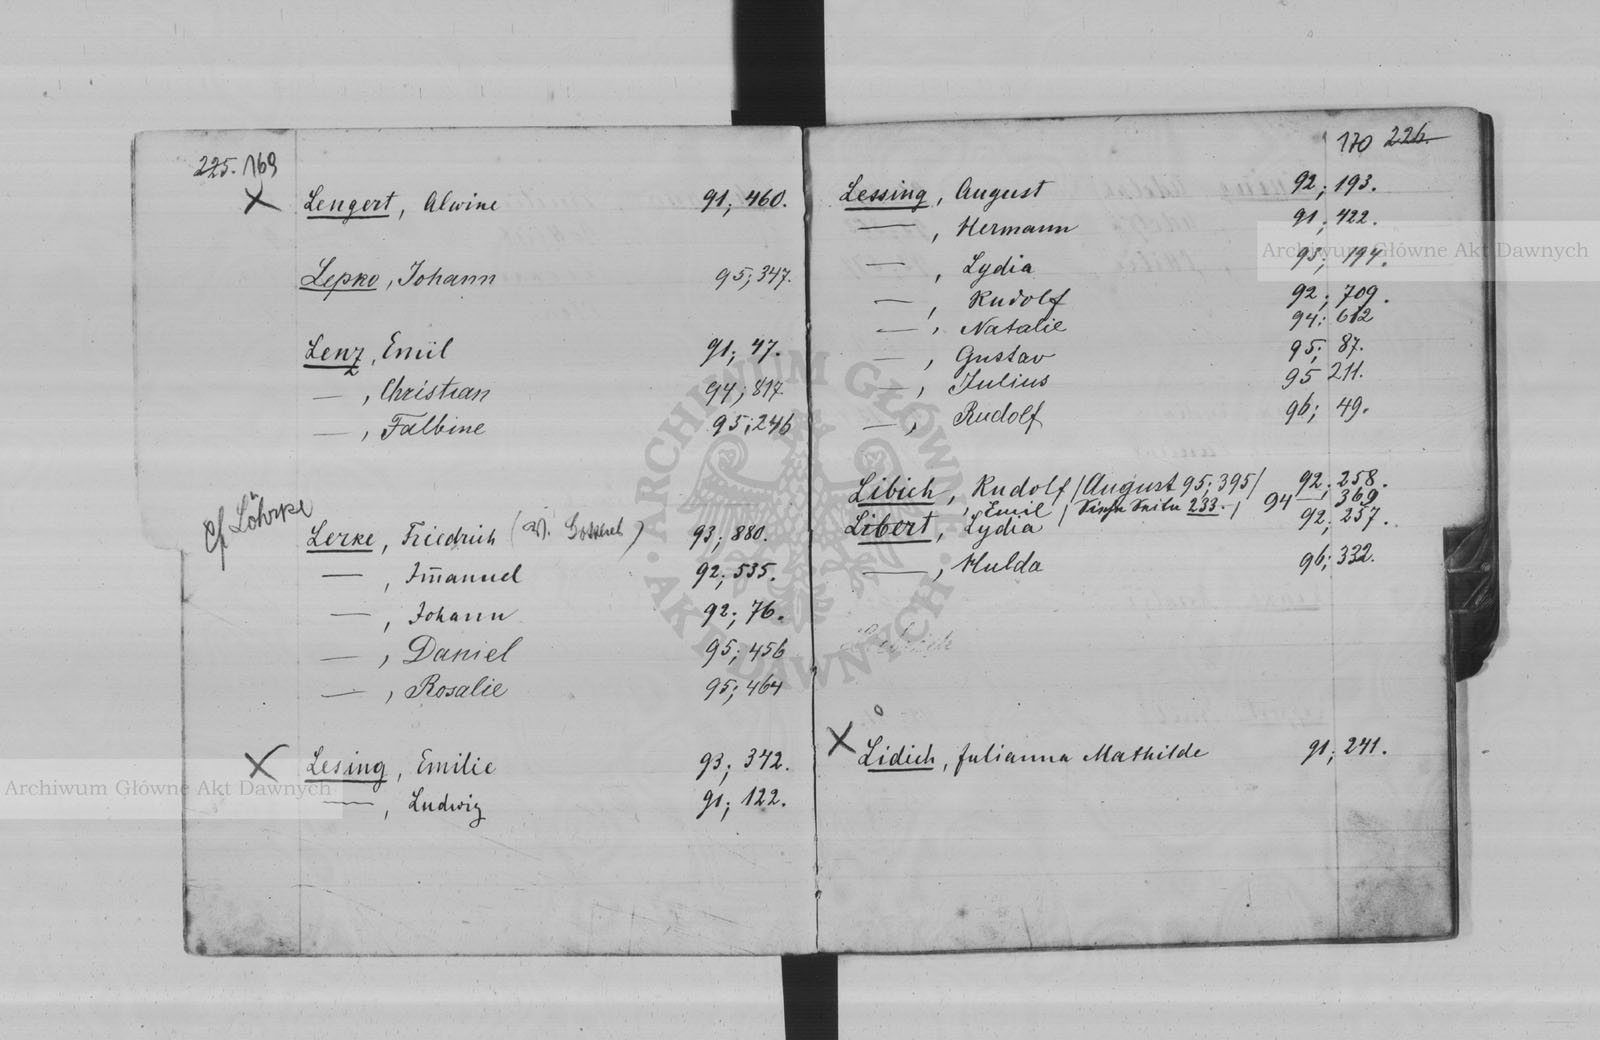 225. 169
Lengert, Alwine 91; 460.
Lepko, Johann 95; 347.
Lenz, Emil 91; 47.
— , Christian 94; 817
— , Falbine 95; 246
cf Löhrke
Lerke, Friedrich ( ) 93; 880.
— , Im̄anuel 92; 535.
— , Johann 92; 76.
— , Daniel 95; 456
— , Rosalie 95; 464
Lesing, Emilie 93; 342.
— , Ludwig 91; 122.
170 226.
Lessing, August 92; 193.
— , Hermann 91; 422.
— , Lydia 93; 194.
— , Rudolf 92; 709.
— , Natalie 94; 612
— , Gustav 95; 87.
— , Julius 95 211.
— , Rudolf 96; 49.
Libich, Rudolf /August 95; 395/ 92; 258.
, Emil / Siehe Seite 233. / 94 — 369
Libert, Lydia 92; 257.
— , Hulda 96; 332.
Lidich, Julianna Mathilde 91; 241.
Archiwum Główne Akt Dawnych
Archiwum Główne Akt Dawnych
ARCHIWUM GŁÓWNE AKT DAWNYCH